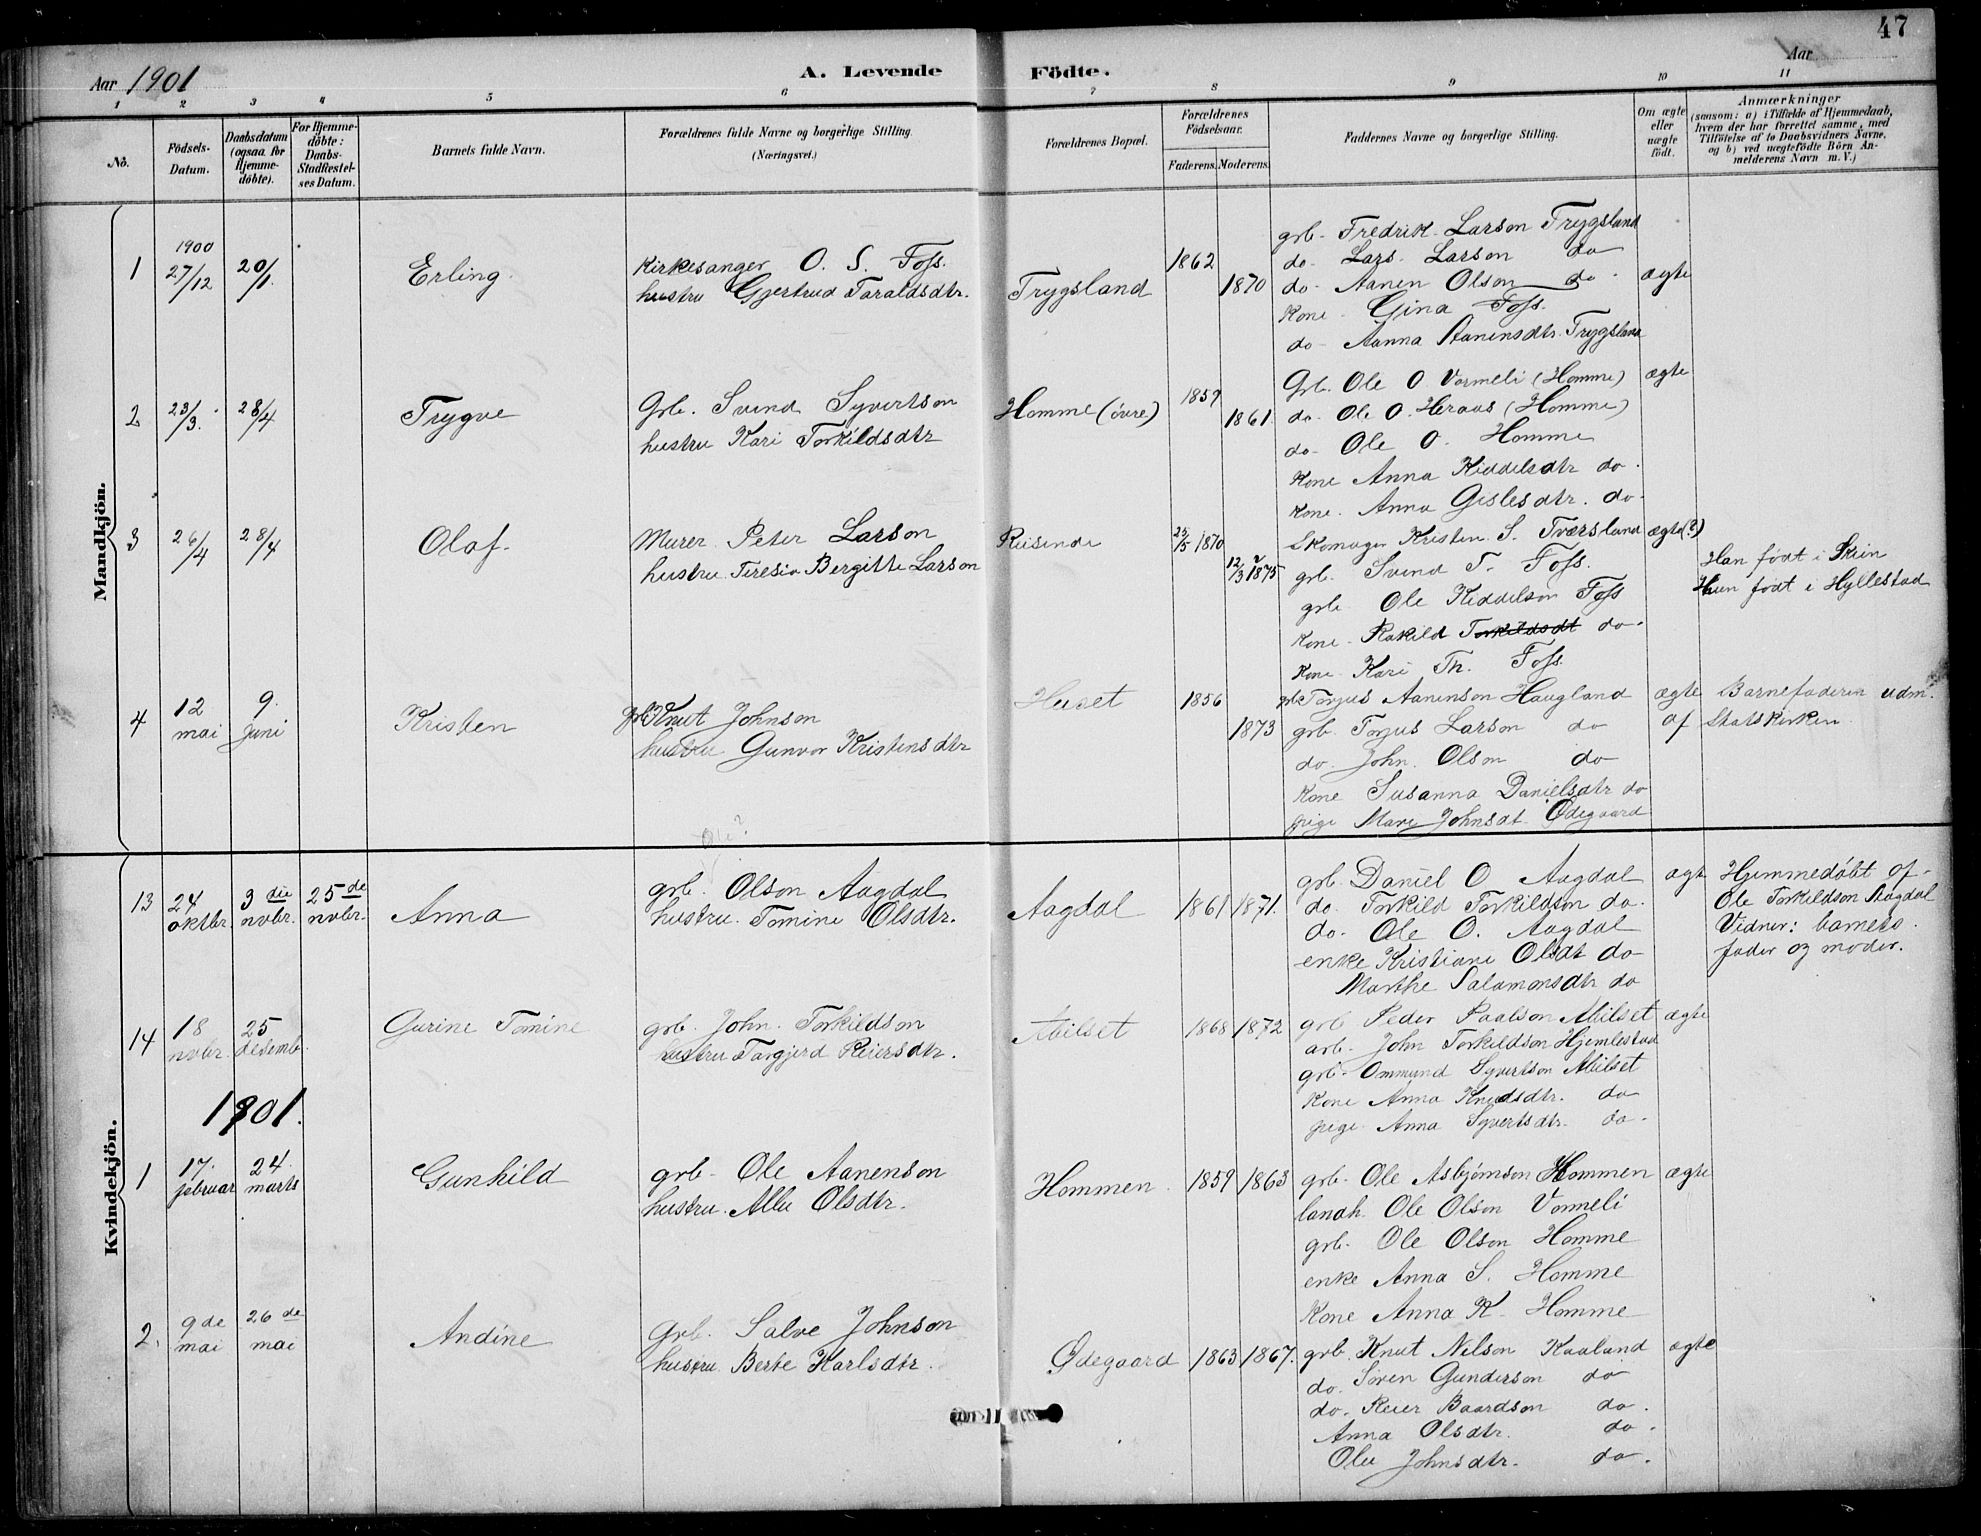 47
Aar 1901
A. Levende
Födte.
Aar
1 2 3 4 5 6 7 8 9 10 11
No.
Födsels-
Datum.
Daabsdatum
(ogsaa for
Hjemme-
döbte).
For Hjemme-
döbte:
Daabs-
Stadfæstel-
ses Datum.
Barnets fulde Navn.
Forældrenes fulde Navne og borgerlige Stilling.
(Næringsvei.)
Forældrenes Bopæl.
Forældrenes
Födselsaar.
Faderens. Moderens.
Faddernes Navne og borgerlige Stilling.
Om ægte
eller
uægte
födt.
Anmærkninger
(saasom: a) i Tilfælde af Hjemmedaab,
hvem der har forrettet samme, med
Tilföielse af to Daabsvidners Navne,
og b) ved uægtefödte Börn An-
melderens Navn m. V.)
Mandkjön.
1
1900
27/12
20/1.
Erling.
Kirkesanger O. S. Foss.
hustru Gjertrud Taraldsdtr.
Trygsland
1862
1870
grb. Fredrik Larson Trygsland
do. Lars. Larson do
do. Aanen Olson do
Kone Gina Foss.
do Aanna Aanensdtr. Trygsland
ægte
2
23/3.
28/4
Trygve
Grb. Svend Syvertson
hustru Kari Torkildsdtr
Homme (øvre)
1859
1861.
Grb. Ole O Vormeli (Homme)
do. Ole O. Heraas (Homme)
do. Ole O. Homme
Kone Anna Kiddelsdtr do.
Kone. Anna Geslesdtr. do.
ægte
3
26/4
28/4
Olaf.
Murer. Peter Larson
hustru. Teresia Bergitte Larson
Reisende
25/5 1870
12/3 1875
Skomager Kristen S. Tværsland
grb. Svend T. Foss.
grb. Ole Kiddelson Foss
Kone. Rakild Torkildsdt do.
Kone. Kari Th. Foss.
ægte(?)
Han født i Skien
Hun født i Hyllestad
4
12 mai
9. Juni
Kristen
Grb. Knut Johnson
hustru Gunvor Kristensdtr
Huset
1856
1873
grb. Torjus Aanenson Haugland
grb. Torjus Larson do
do. John. Olson do
Kone Susanna Danielsdtr do
pige Mari Johnsdt. Ødegaard
ægte
Barnefaderen udm.
af Statskirken.
Kvindekjön.
13
24 oktbr.
3 die novbr.
25 de novbr.
Anna
Ole?
grb. Olson Aagdal
hustru. Tomine Olsdtr.
Aagdal
1861
1871.
grb. Daniel O Aagdal
do. Torkild Torkildson do.
do. Ole O. Aagdal
enke Kristiane Olsdt do
Marthe Salamonsdtr do
ægt
Hjemmedøbt af
Ole Torkildson Aagdal
Vidner: barnets
fader og moder.
14
18 novbr.
25 desemb.
Gurine Tomine
grb. John. Torkildson
hustru Targjerd Reiersdtr.
Abilset
1868
1872
grb Peder Paalson Abilset
arb. John Torkildson Hjemlestad
grb. Ommund Syvertson Abilset
Kone Anna Knudsdtr. do
pige. Anna Syvertsdtr. do.
ægte
1901.
1
17. februar
24. marts
Gunhild
grb. Ole Aanenson
hustru. Olsdtr.
Hommen
1859
1863
grb. Ole Asbjørnson Hommen
landh. Ole Olson Vormeli
grb. Ole Olson Homme
enke Anna S. Homme
Kone Anna K. Homme
ægte
2.
9 de mai
26 de mai
Andine
Grb. Salve Johnson
hustru. Berte Karlsdtr.
Ødegaard
1863
1867.
grb. Knut Nilson Kaaland
do. Søren Gunderson do
do. Reier Baardson do.
Anna Olsdtr. do.
Olee Johnsdtr. do.
ægte